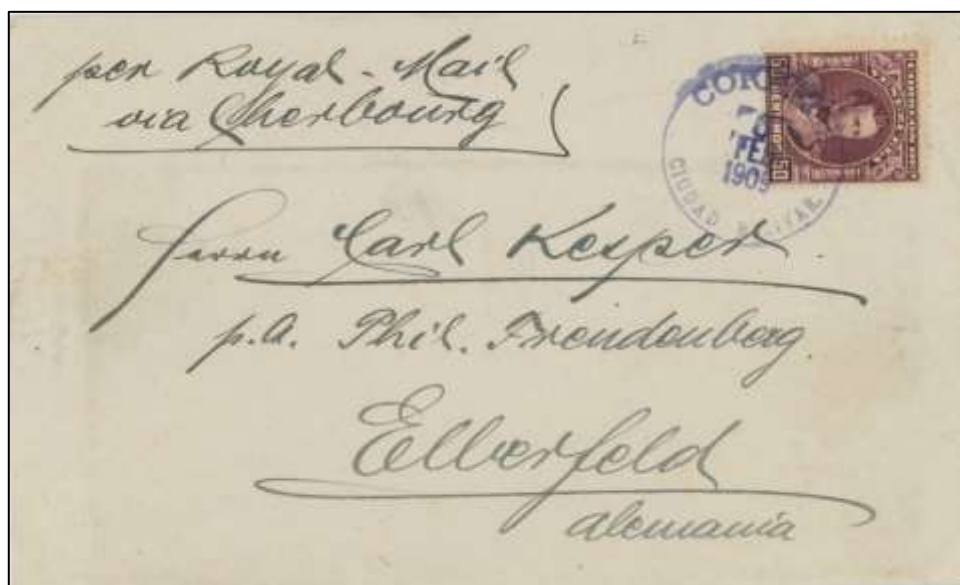 per Royal-Mail
via Cherbourg
CORREOS
FEB
1909
CIUDAD BOLIVAR.
50
50
Herrn Carl Kesper.
p.a. Phil. Freudenberg.
Elberfeld
Alemania